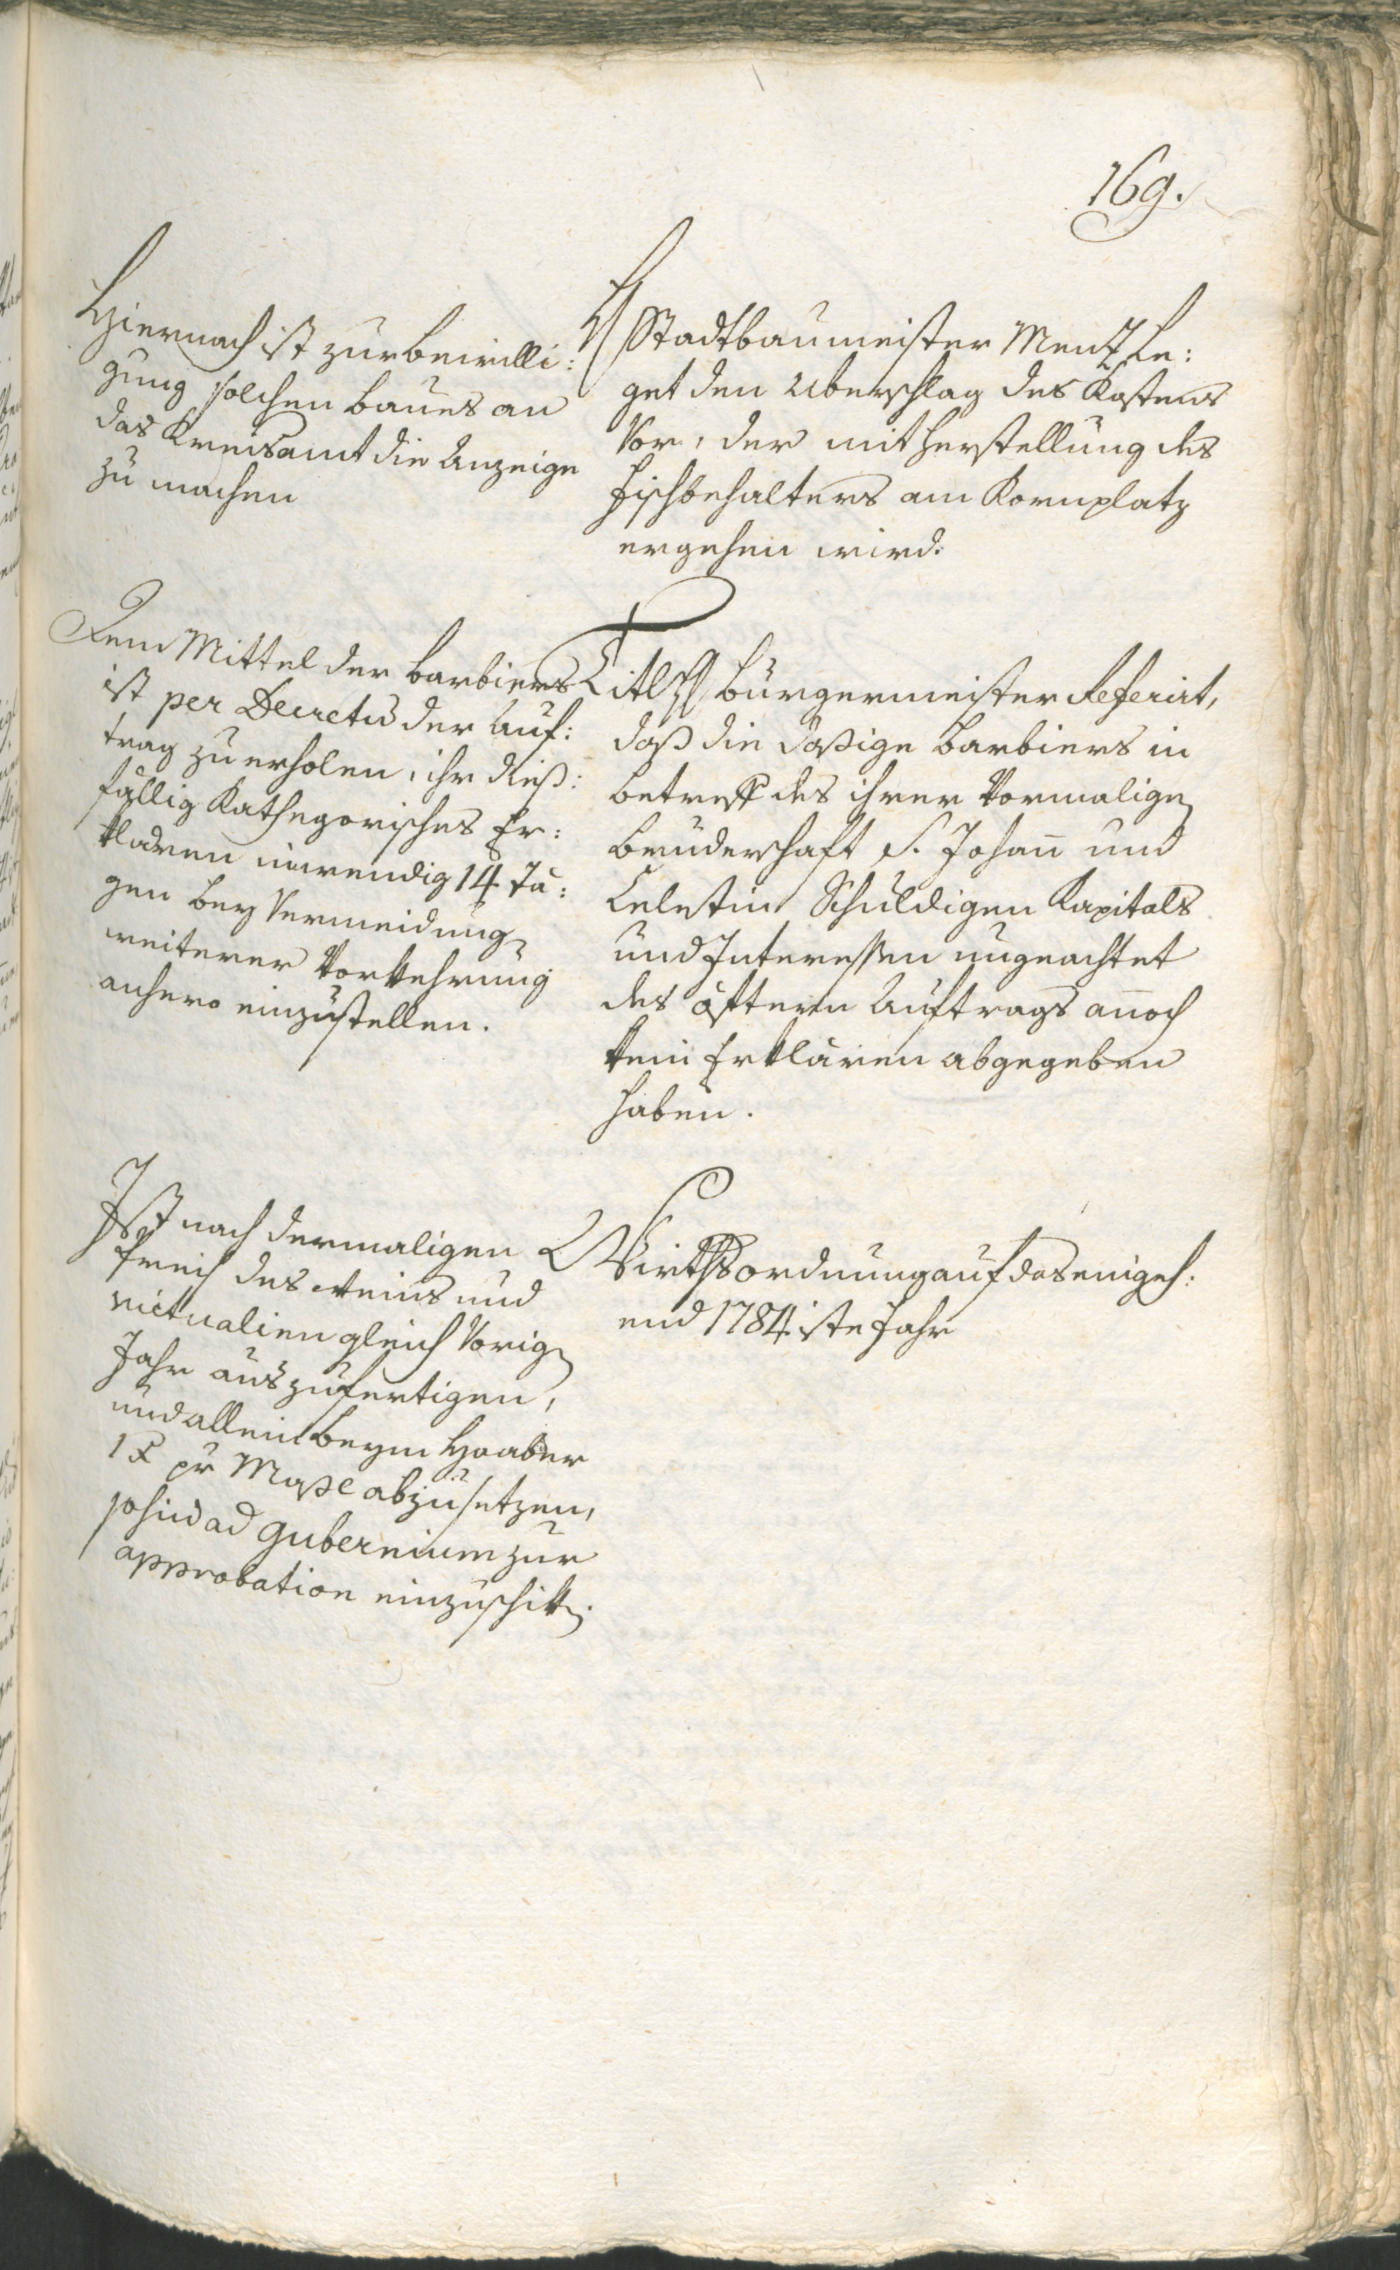 169.
Hiernach ist zur Bewilli:
gung solchen Baues an
das Kreisamt die Anzeige
zu machen
H Stadtbaumeister Mentz Le:
get den Uberschlag des Kostens
Vor, der mit Herstellung des
Fischbehalters am Kornplatz
ergehen wird.
Dem Mittel der Barbiers
ist per Decretũ der Auf:
trag zu erholen, ihr dieß:
fällig Kathegorisches Er:
klären inwendig 14 Tä:
gen bey Vermeidung
weiterer Vorkehrung
anhero einzustellen.
Titl H Bürgermeister Referirt,
daß die dasige Barbiers in
betreff des ihrer Vormaligen
Bruderschaft S. Johañ und
Celestin Schuldigen Kapitals
und Interessen ungeachtet
des öfftern Auftrags añoch
kein Erklären abgegeben
haben.
Ist nach dermaligen
Preis des Weins und
victualien gleich Vorigen
Jahr auszufertigen,
und allein beym Haaber
1 x pr Maße abzusetzen,
sohin ad Gubernium zur
approbation einzuschiken.
Wirthsordnung auf das eingeh:
end 1784iste Jahr